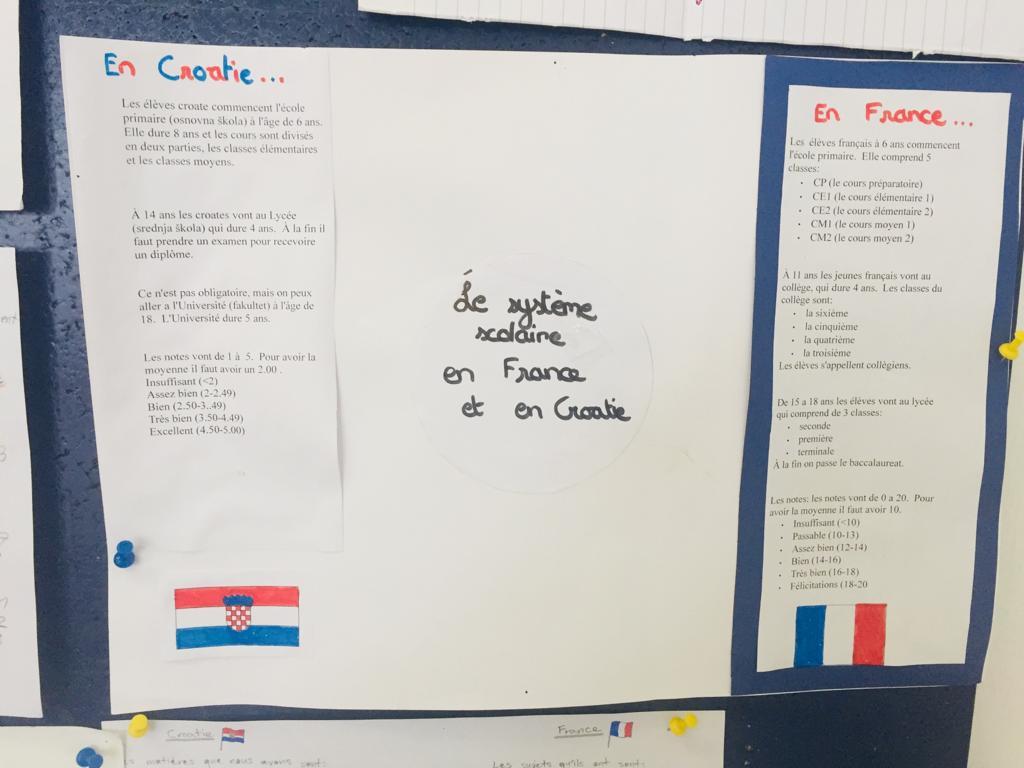 En Croatie...
Les élèves croate commencent l'école
primaire (osnovna škola) à l'âge de 6 ans.
Elle dure 8 ans et les cours sont divisés
en deux parties, les classes élémentaires
et les classes moyens.
À 14 ans les croates vont au Lycée
(srednja škola) qui dure 4 ans. À la fin il
faut prendre un examen pour recevoire
un diplôme.
Ce n'est pas obligatoire, mais on peux
aller a l'Université (fakultet) à l'âge de
18. L'Université dure 5 ans.
Les notes vont de 1 à 5. Pour avoir la
moyenne il faut avoir un 2.00 .
Insuffisant (<2)
Assez bien (2-2.49)
Bien (2.50-3..49)
Très bien (3.50-4.49)
Excellent (4.50-5.00)
Le système
scolaire
en France
et en Croatie
En France...
Les élèves français à 6 ans commencent
l'école primaire. Elle comprend 5
classes:
• CP (le cours préparatoire)
• CE1 (le cours élémentaire 1)
• CE2 (le cours élémentaire 2)
• CM1 (le cours moyen 1)
• CM2 (le cours moyen 2)
À 11 ans les jeunes français vont au
collège, qui dure 4 ans. Les classes du
collège sont:
• la sixième
• la cinquième
• la quatrième
• la troisième
Les élèves s'appellent collégiens.
De 15 a 18 ans les élèves vont au lycée
qui comprend de 3 classes:
• seconde
• première
• terminale
À la fin on passe le baccalaureat.
Les notes: les notes vont de 0 a 20. Pour
avoir la moyenne il faut avoir 10.
• Insuffisant (<10)
• Passable (10-13)
• Assez bien (12-14)
• Bien (14-16)
• Très bien (16-18)
• Félicitations (18-20
Croatie
France
matières que nous avons sont:
Les sujets qu'ils ont sont: